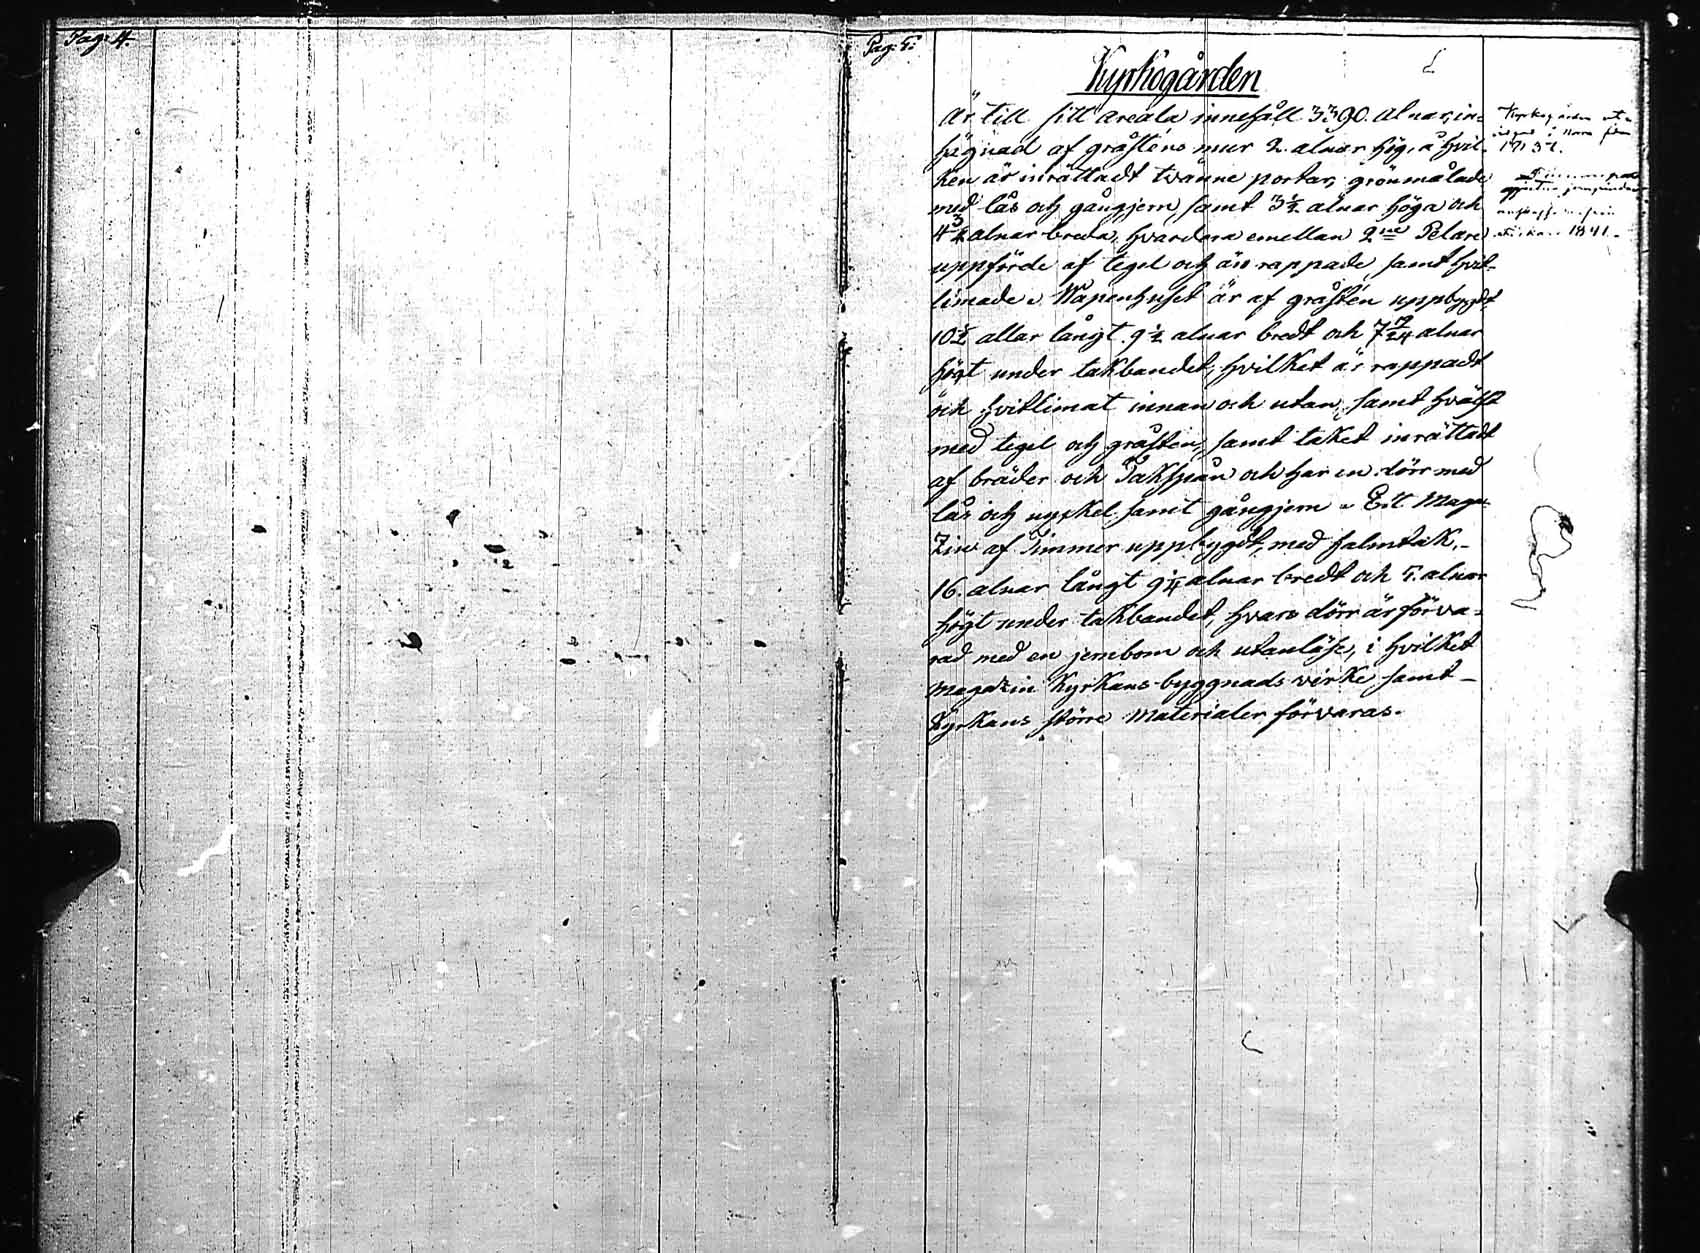 Pag: 4.
Pag: 5:
Kyrkogården
är till sitt areala innehåll 3390. alnar, in-
hägnad af gråstens mur 2. alnar hög, å hvil-
ken är inrättadt twänne portar, grönmålade
med lås och gångjern, samt 3½ alnar höga och
4¾ alnar breda, hvardera emellan 2ne Pelare
uppförde af tegel och äro rappade, samt hvit-
limade. Wapenhuset är af gråsten uppbygdt,
10½ allar långt 9½ alnar bredt och 7 7/24 alnar
högt under takbandet, hvilket är rappadt
och hvitlimat innan och utan, samt hvälft
med tegel och gråsten, samt taket inrättadt
af bräder och Takspån och har en dörr med
lås och nyckel samt gångjern. Ett Maga-
zin af Timmer uppbygdt, med halmtak,
16. alnar långt 9¼ alnar bredt och 5. alnar
högt under takbandet, hvars dörr är förva-
rad med en jernbom och utanlåse, i hvilket
magazin Kyrkans byggnads virke samt
Kyrkans större Materialer förvaras.
Kyrkogården ut-
i norra
1841.